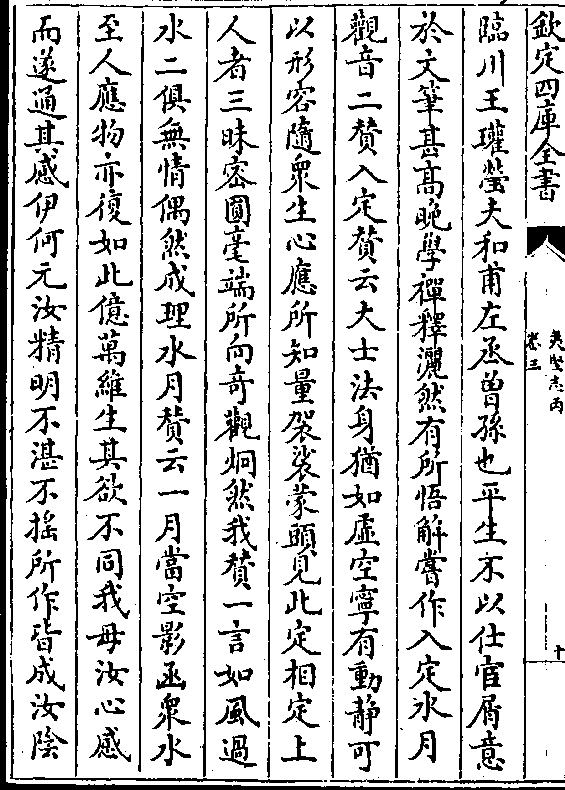 欽定四庫全書
夷堅志丙
卷三
十
臨川王瓘瑩夫和甫左丞曾孫也平生不以仕官屑意
於文筆甚髙晚學禪釋灑然有所悟解嘗作入定水月
觀音二賛入定賛云大士法身猶如虚空寧有動静可
以形容隨衆生心應所知量袈裟蒙頭見此定相定上
人者三昧密圓毫端所向奇觀炯然我賛一言如風過
水二俱無情偶然成理水月賛云一月當空影函衆水
至人應物亦復如此億萬維生其欲不同我毋汝心感
而遂通其感伊何元汝精明不湛不揺所作皆成汝隂